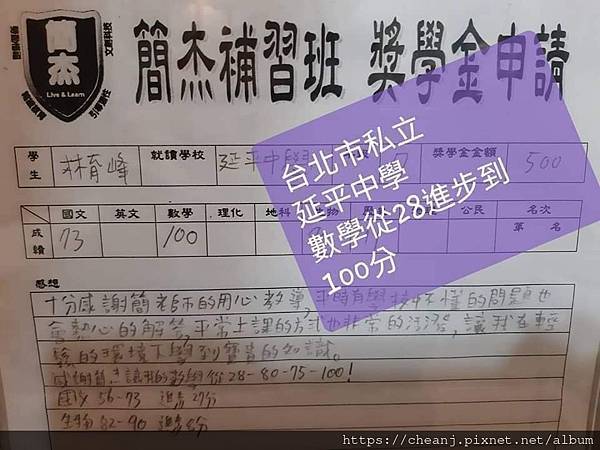 簡杰補習班 獎學金申請
簡杰
Live & Learn
學生 林育峰 就讀學校 延平中學 7 獎學金金額 500
國文 英文 數學 理化 地科 生物 公民 名次
成績 73 100 第 名
台北市私立
延平中學
數學從28進步到
100分
感想
十分感謝簡老師的用心教導,平時有學校不懂的問題也
會熱心的解答,平常上課的方式也非常的活潑,讓我在輕
鬆的環境下學到寶貴的知識。
感謝簡杰讓我的數學從28-80-75-100!
國文 56-73 進步27分
生物 82-90 進步8分
https://cheanj.pixnet.net/album